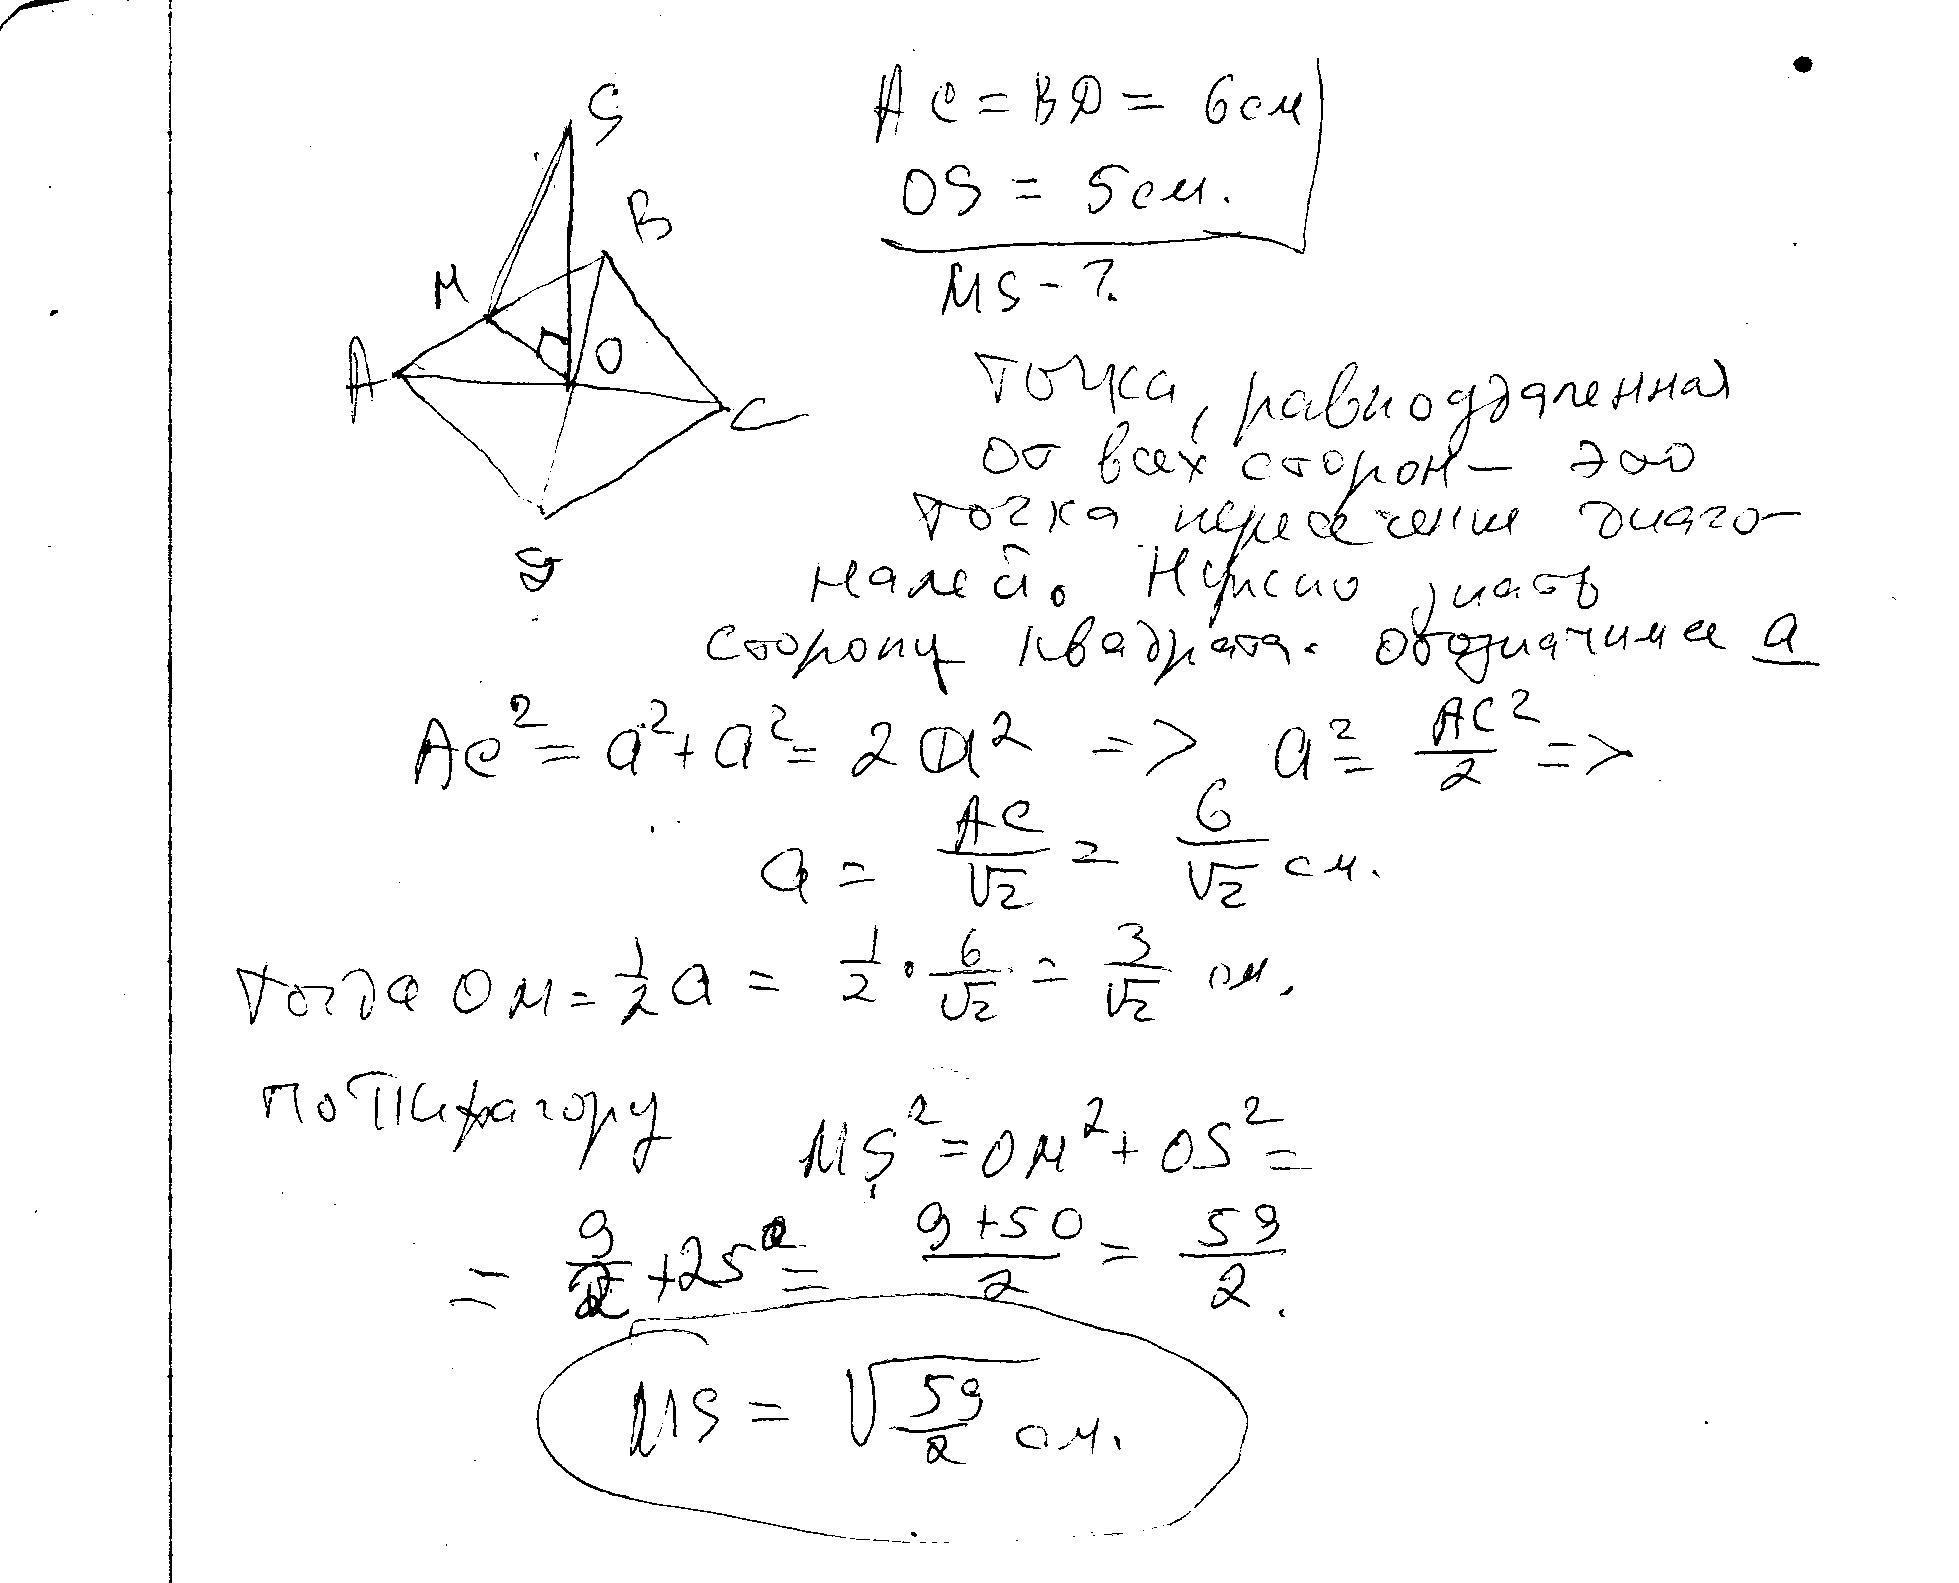 S
B
M
A
O
C
D
AC = BD = 6 см
OS = 5 см.
MS - ?
Точка, равноудаленная
от всех сторон - это
точка пересечения диаго-
налей. Нужно знать
сторону квадрата. обозначим её a
AC² = a² + a² = 2a² => a² = AC²/2 =>
a = AC/√2 = 6/√2 см.
Тогда OM = 1/2 a = 1/2 · 6/√2 = 3/√2 см.
По Пифагору
MS² = OM² + OS² =
= 9/2 + 25 = (9+50)/2 = 59/2.
MS = √(59/2) см.